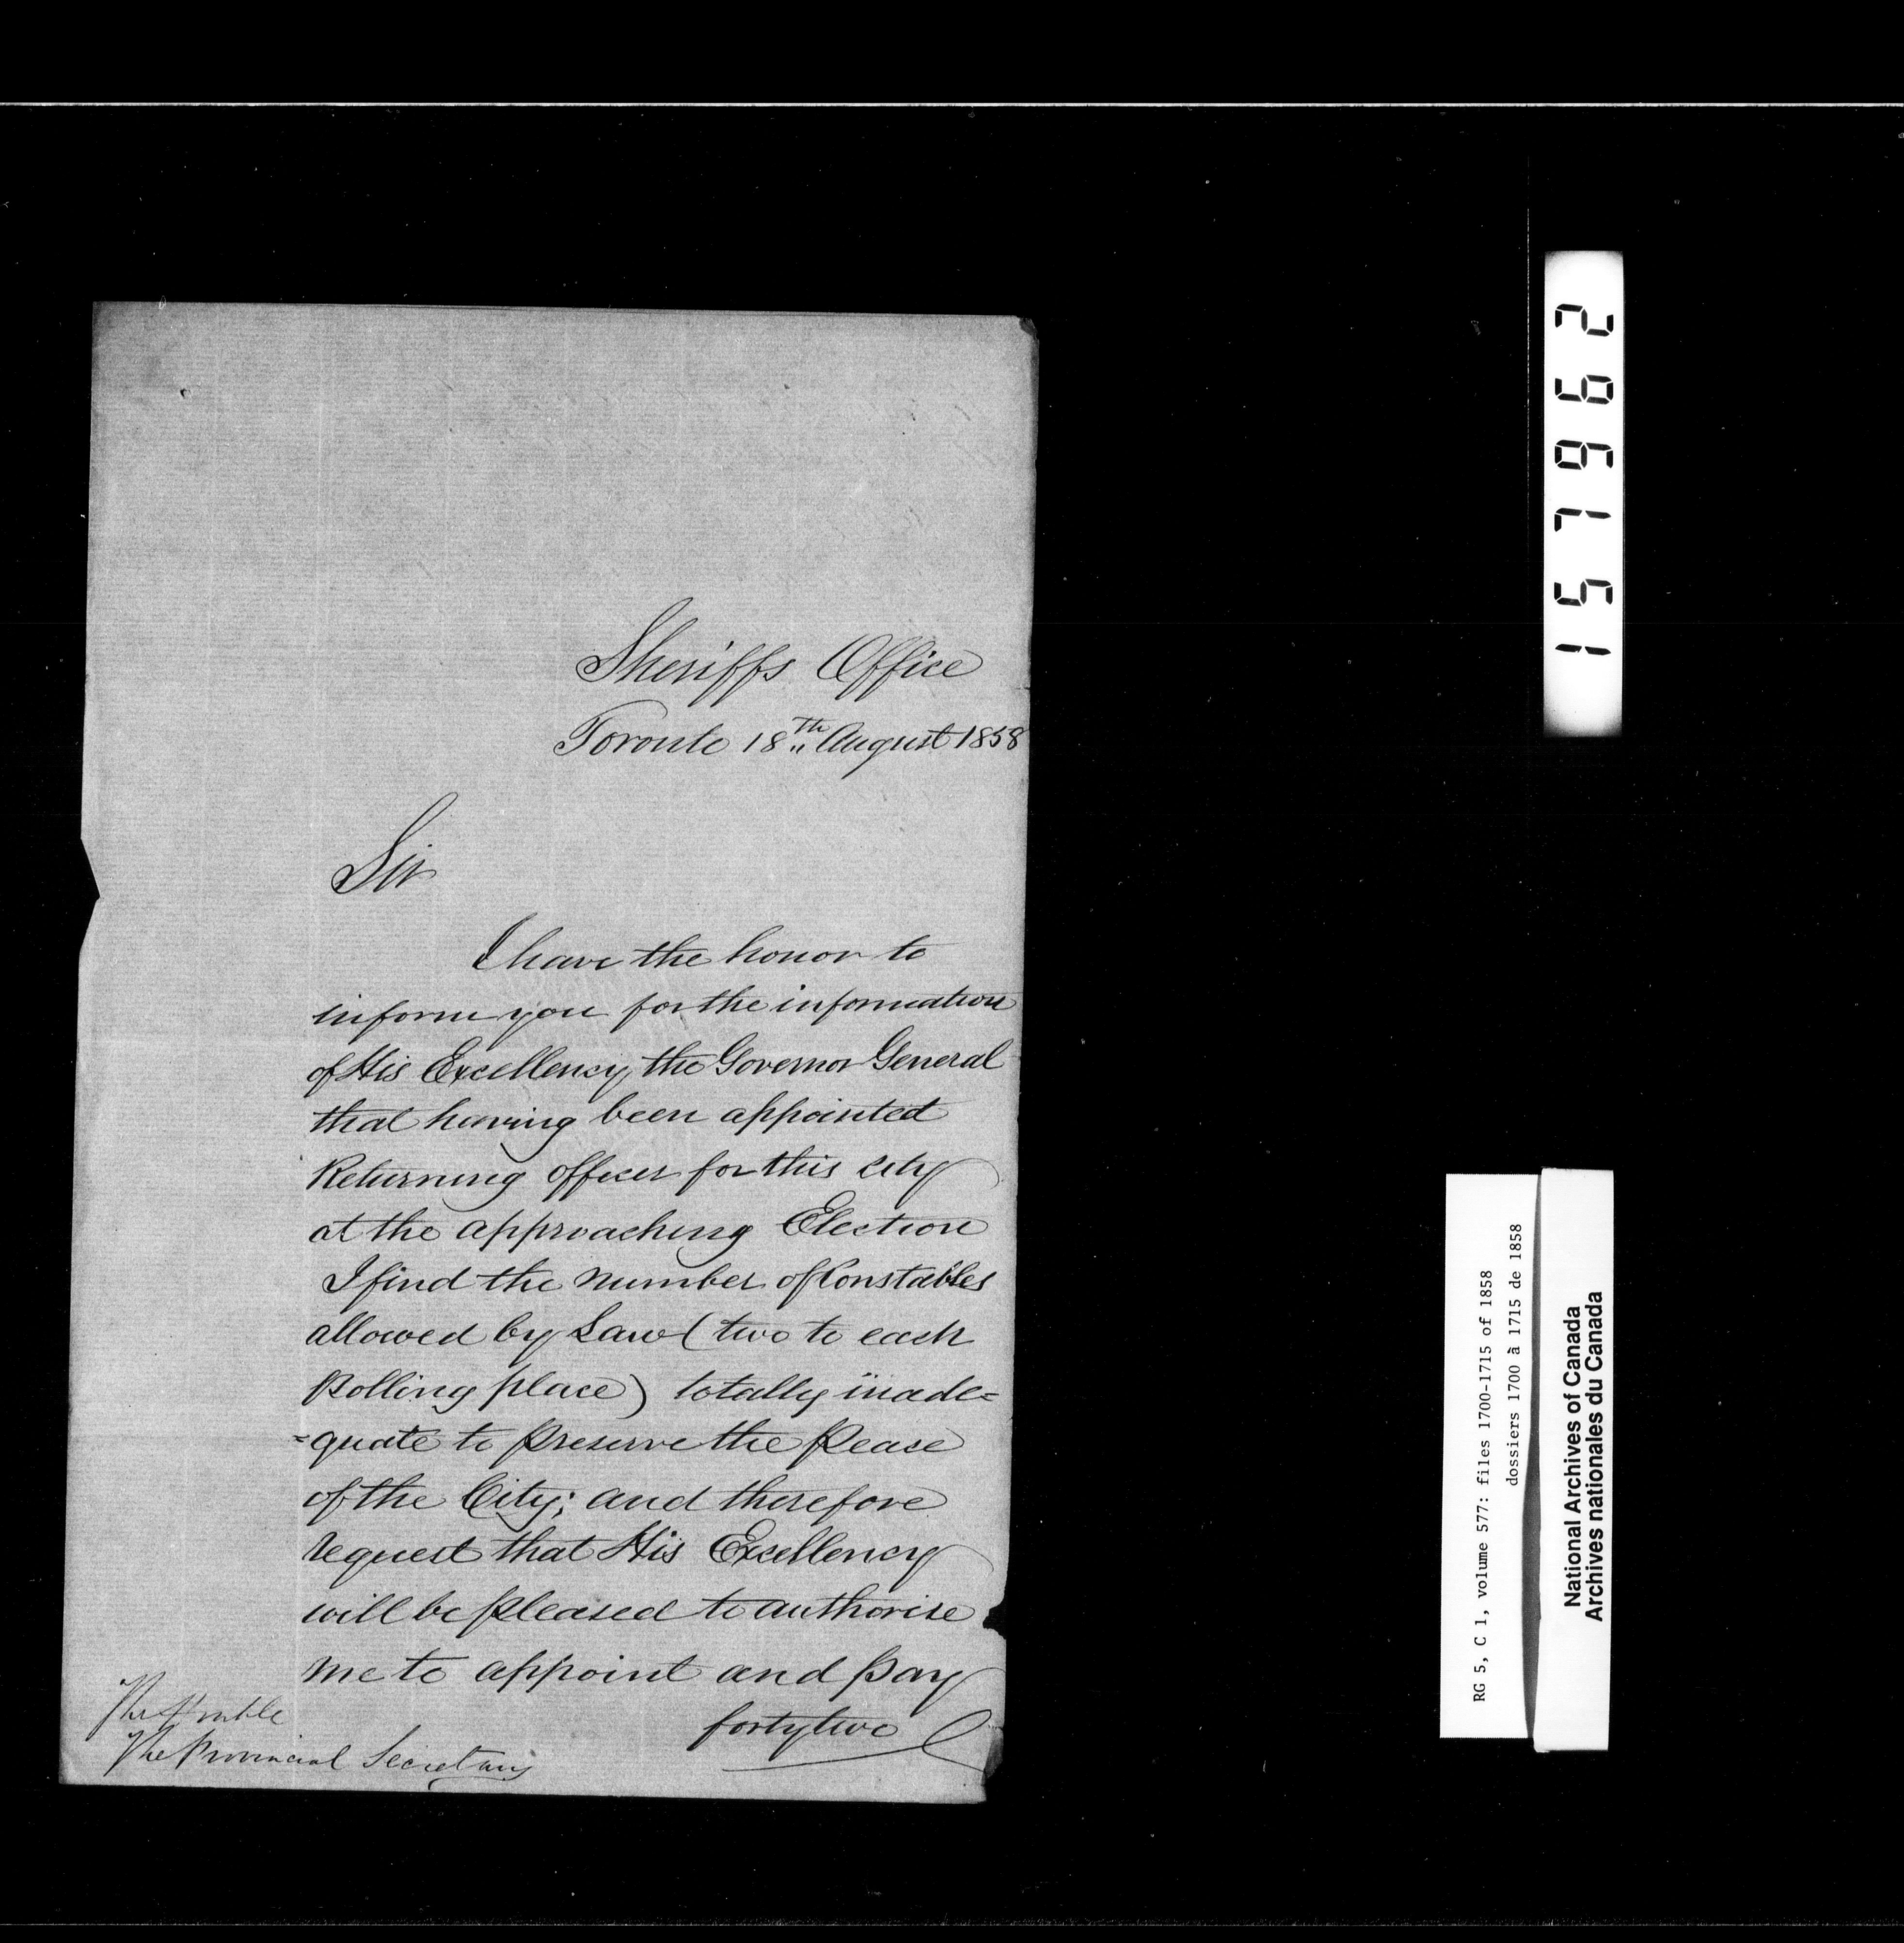 Sheriffs Office
Toronto 18th August 1858
Sir
I have the honor to
inform you for the information
of His Excellency the Governor General
that having been appointed
Returning officer for this city
at the approaching Election
I find the number of Constables
allowed by Law (two to each
polling place) totally inade=
=quate to preserve the peace
of the City; and therefore
request that His Excellency
will be pleased to authorise
me to appoint and pay
forty two
The Honble
The Provincial Secretary
157962
RG 5, C 1, volume 577: files 1700-1715 of 1858
dossiers 1700 à 1715 de 1858
National Archives of Canada
Archives nationales du Canada